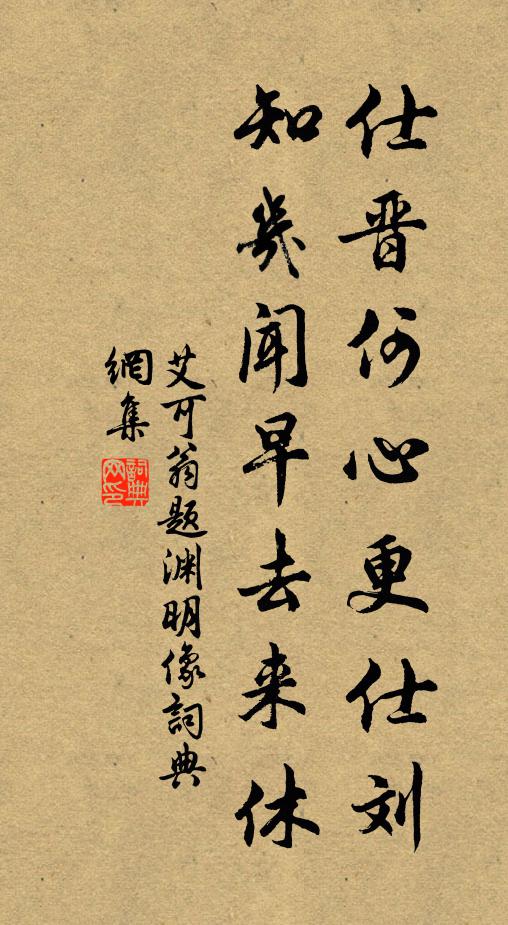 仕晋何心更仕刘
知几闻早去来休
艾可翁题渊明像詞典
網集
詞典网印